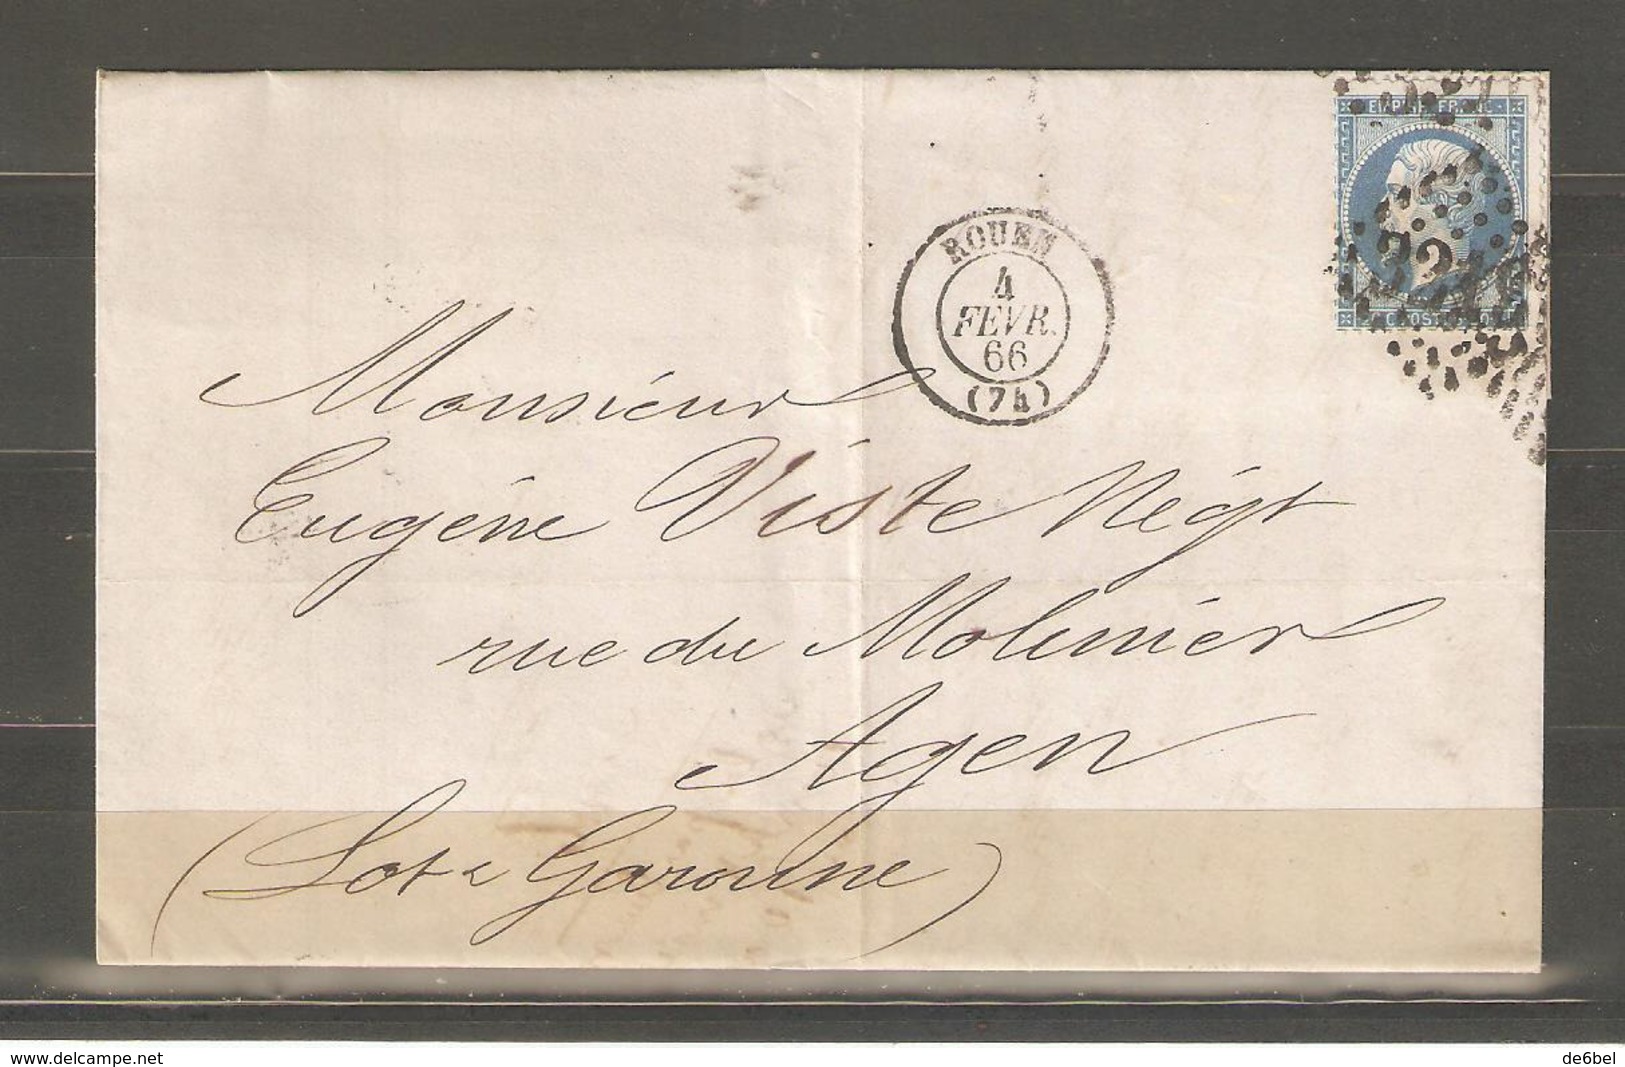 EMPIRE FRANC
ROUEN
4
FEVR.
66
(7h)
Monsieur
Eugéne Viste Négt
rue du Molinier
Agen
(Lot & Garonne)
www.delcampe.net
de6bel